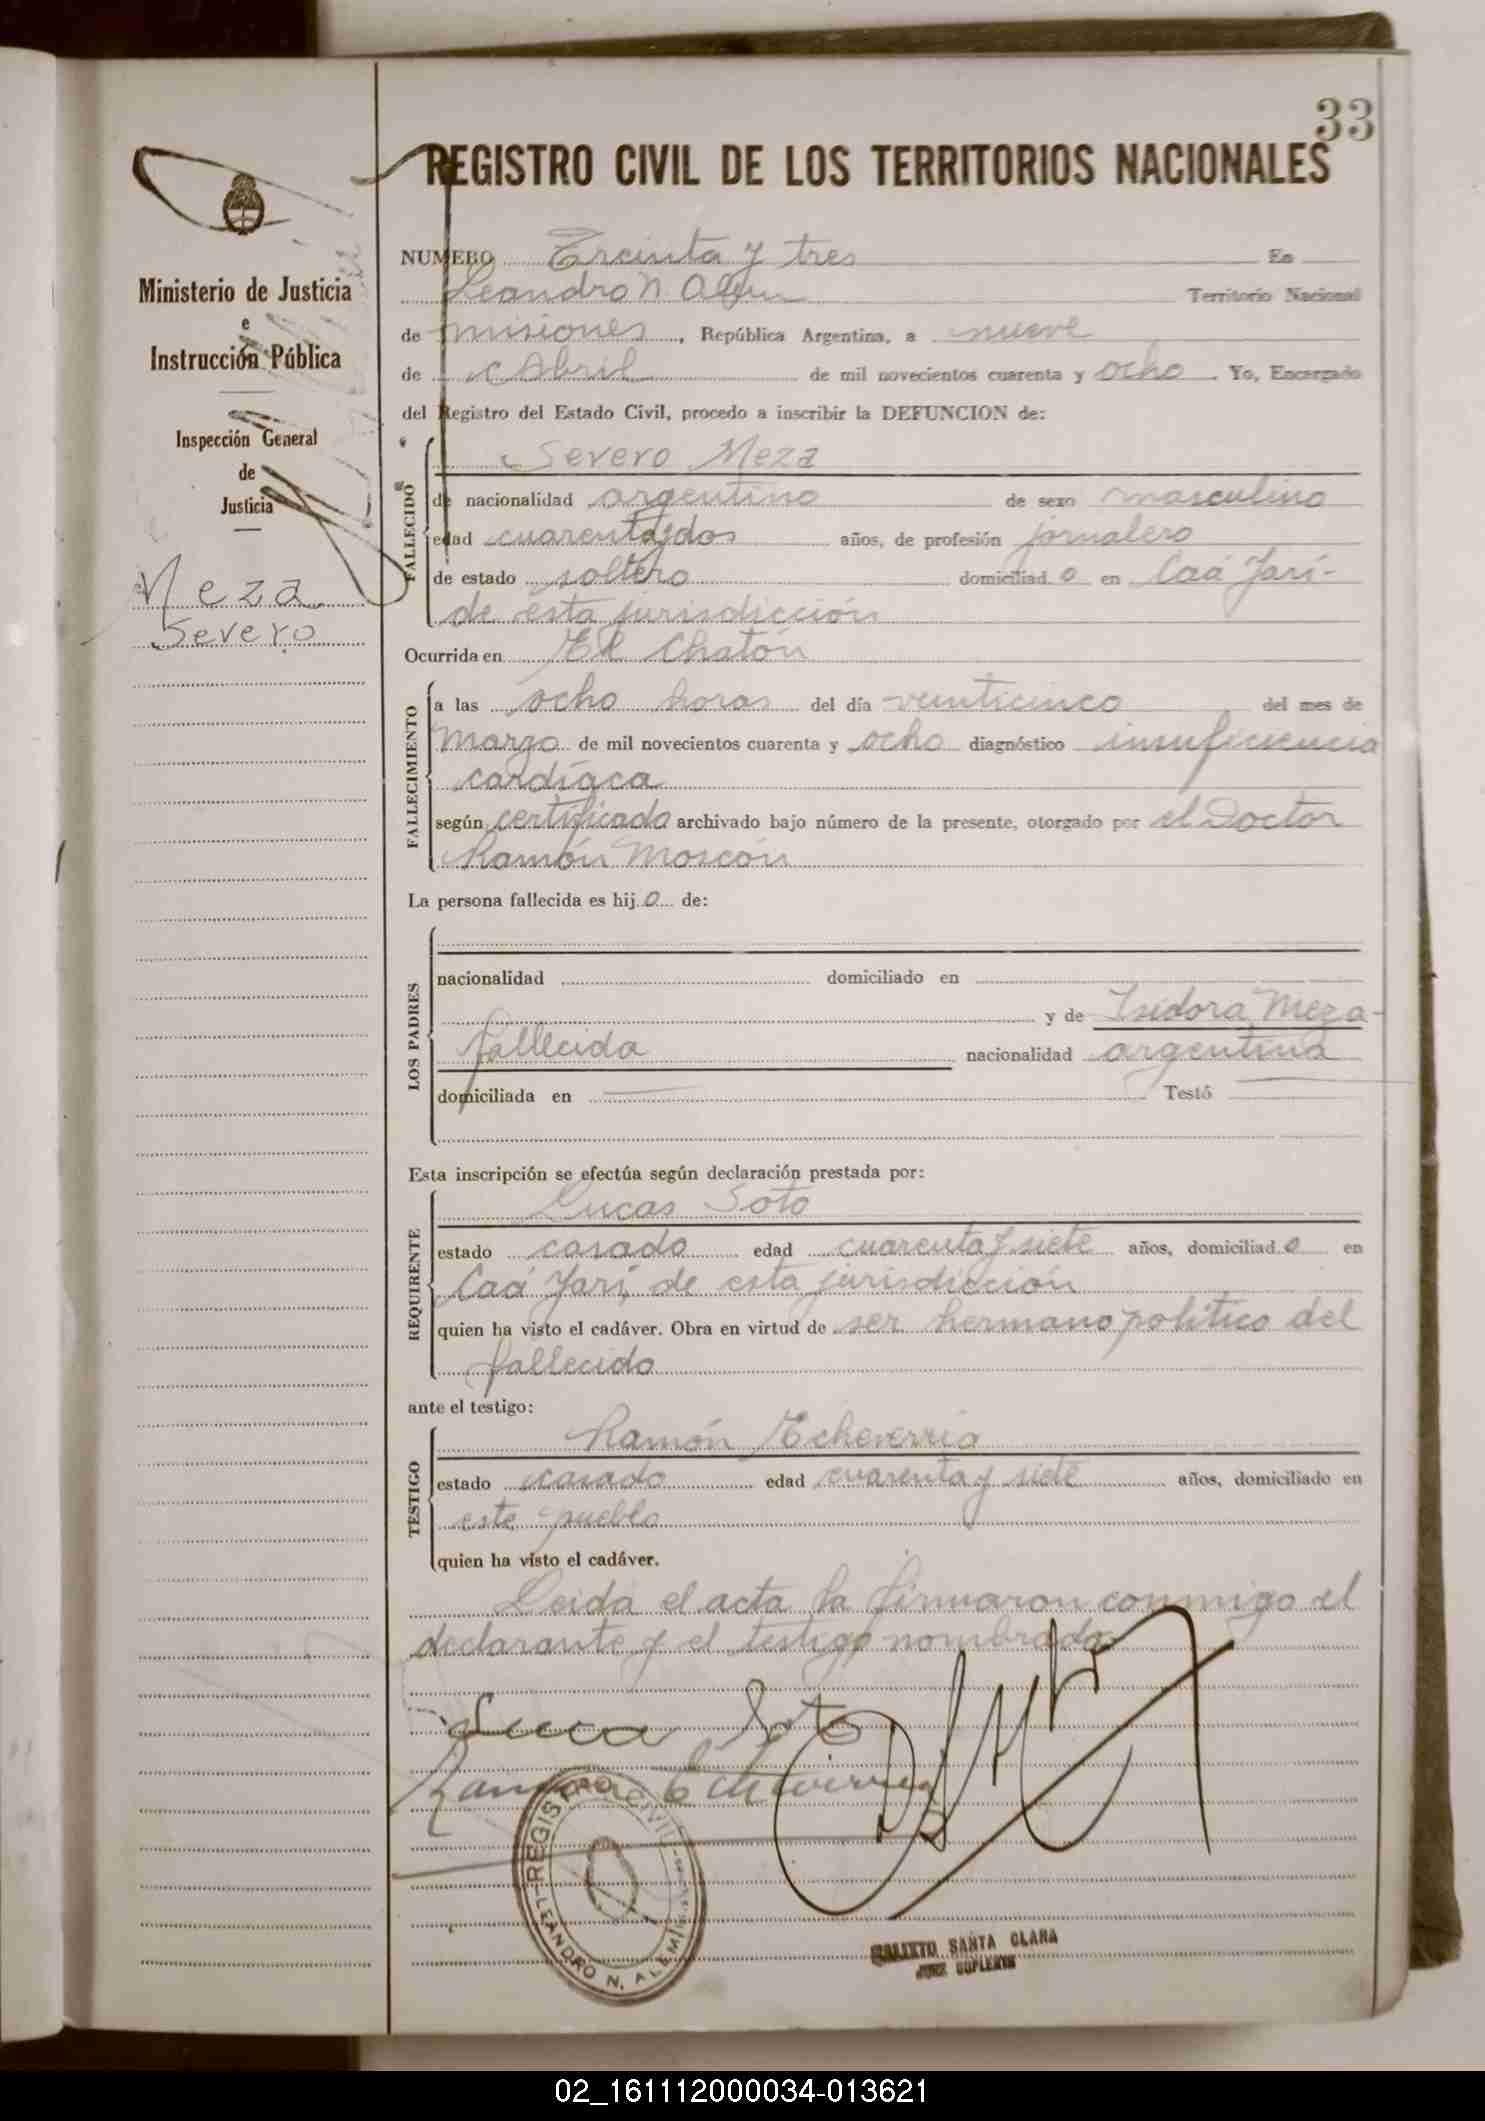 33
REGISTRO CIVIL DE LOS TERRITORIOS NACIONALES
Ministerio de Justicia
e
Instrucción Pública
Inspección General
de
Justicia
Meza
Severo
NUMERO Treinta y tres En
Leandro N. Alem Territorio Nacional
de misiones, República Argentina, a nueve
de Abril de mil novecientos cuarenta y ocho. Yo, Encargado
del Registro del Estado Civil, procedo a inscribir la DEFUNCION de:
FALLECIDO
Severo Meza
de nacionalidad argentino de sexo masculino
edad cuarenta y dos años, de profesión jornalero
de estado soltero domiciliado en Caá Yarí-
de esta jurisdicción
Ocurrida en El Chatón
FALLECIMIENTO
a las ocho horas del día veinticinco del mes de
Marzo de mil novecientos cuarenta y ocho diagnóstico insuficiencia
cardíaca
según certificado archivado bajo número de la presente, otorgado por el Doctor
Ramón Moscón
La persona fallecida es hijo de:
LOS PADRES
nacionalidad domiciliado en
y de Isidora Meza-
fallecida nacionalidad argentina
domiciliada en Testó
Esta inscripción se efectúa según declaración prestada por:
REQUIRENTE
Lucas Soto
estado casado edad cuarenta y siete años, domiciliado en
Caá Yarí, de esta jurisdicción
quien ha visto el cadáver. Obra en virtud de ser hermano político del
fallecido
ante el testigo:
TESTIGO
Ramón Echeverria
estado casado edad cuarenta y siete años, domiciliado en
este pueblo
quien ha visto el cadáver.
Leida el acta la firmaron conmigo el
declarante y el testigo nombrado
Luca Soto
Ramon Echeverria
REGISTRO CIVIL
LEANDRO N. ALEM
SANTA CLARA
JUEZ SUPLENTE
02_161112000034-013621